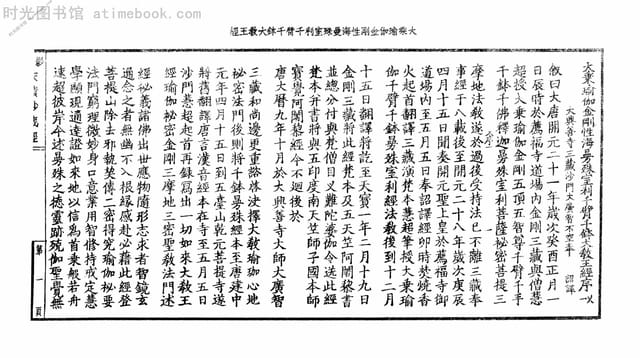 大乘瑜伽金剛性海曼殊室利千臂千鉢大教王經
大乘瑜伽金剛性海曼殊室利千臂千鉢大教王經序
大興善寺三藏沙門大廣智不空奉 詔譯
敘曰大唐開元二十一年歲次癸酉正月一
日辰時於薦福寺道場內金剛三藏與僧慧
超授大乘瑜伽金剛五頂五智尊千臂千手
千鉢千佛釋迦曼殊室利菩薩秘密菩提三
摩地法教遂於過後受持法已不離三藏奉
事經于八載後至開元二十八年歲次庚辰
四月十五日聞奏開元聖上皇於薦福寺御
道場內至五月五日奉詔譯經卯時焚燒香
火起首翻譯三藏演梵本慧超筆授大乘瑜
伽千臂千鉢曼殊室利經法教後到十二月
十五日翻譯將訖至天寶一年二月十九日
金剛三藏將此經梵本及五天竺阿闍黎書
並總分付與梵僧目叉難陀婆伽令送此經
梵本并書將與五印度南天竺師子國本師
寶覺阿闍黎經今不迴後於
唐大曆九年十月於大興善寺大師大廣智
三藏和尚邊更重諮啟決擇大教瑜珈心地
秘密法門後則將千鉢曼殊經本至唐建中
元年四月十五日到五臺山乾元菩提寺遂
將舊翻譯唐言漢音經本在寺至五月五日
沙門慧超起首再錄寫出一切如來大教王
經瑜伽秘密金剛三摩地三密聖教法門述
經秘義諸佛出世應物隨形志求者智鏡玄
過念之者無幽不入根緣感赴必藉此經登
菩提山除去邪執契傳二密得究瑜伽秘要
法門窮理微妙身口意業用智修持戒定慧
學頓現通達如來地以信為首乘般若舟
速超彼岸今述曼殊之德靈跡伽聖覺無
第一頁
时光图书馆